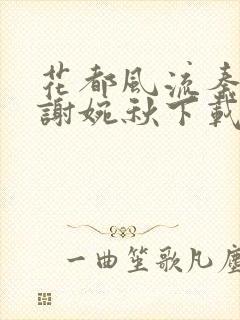 花都風流秦
謝婉秋下載
一曲笙歌凡塵